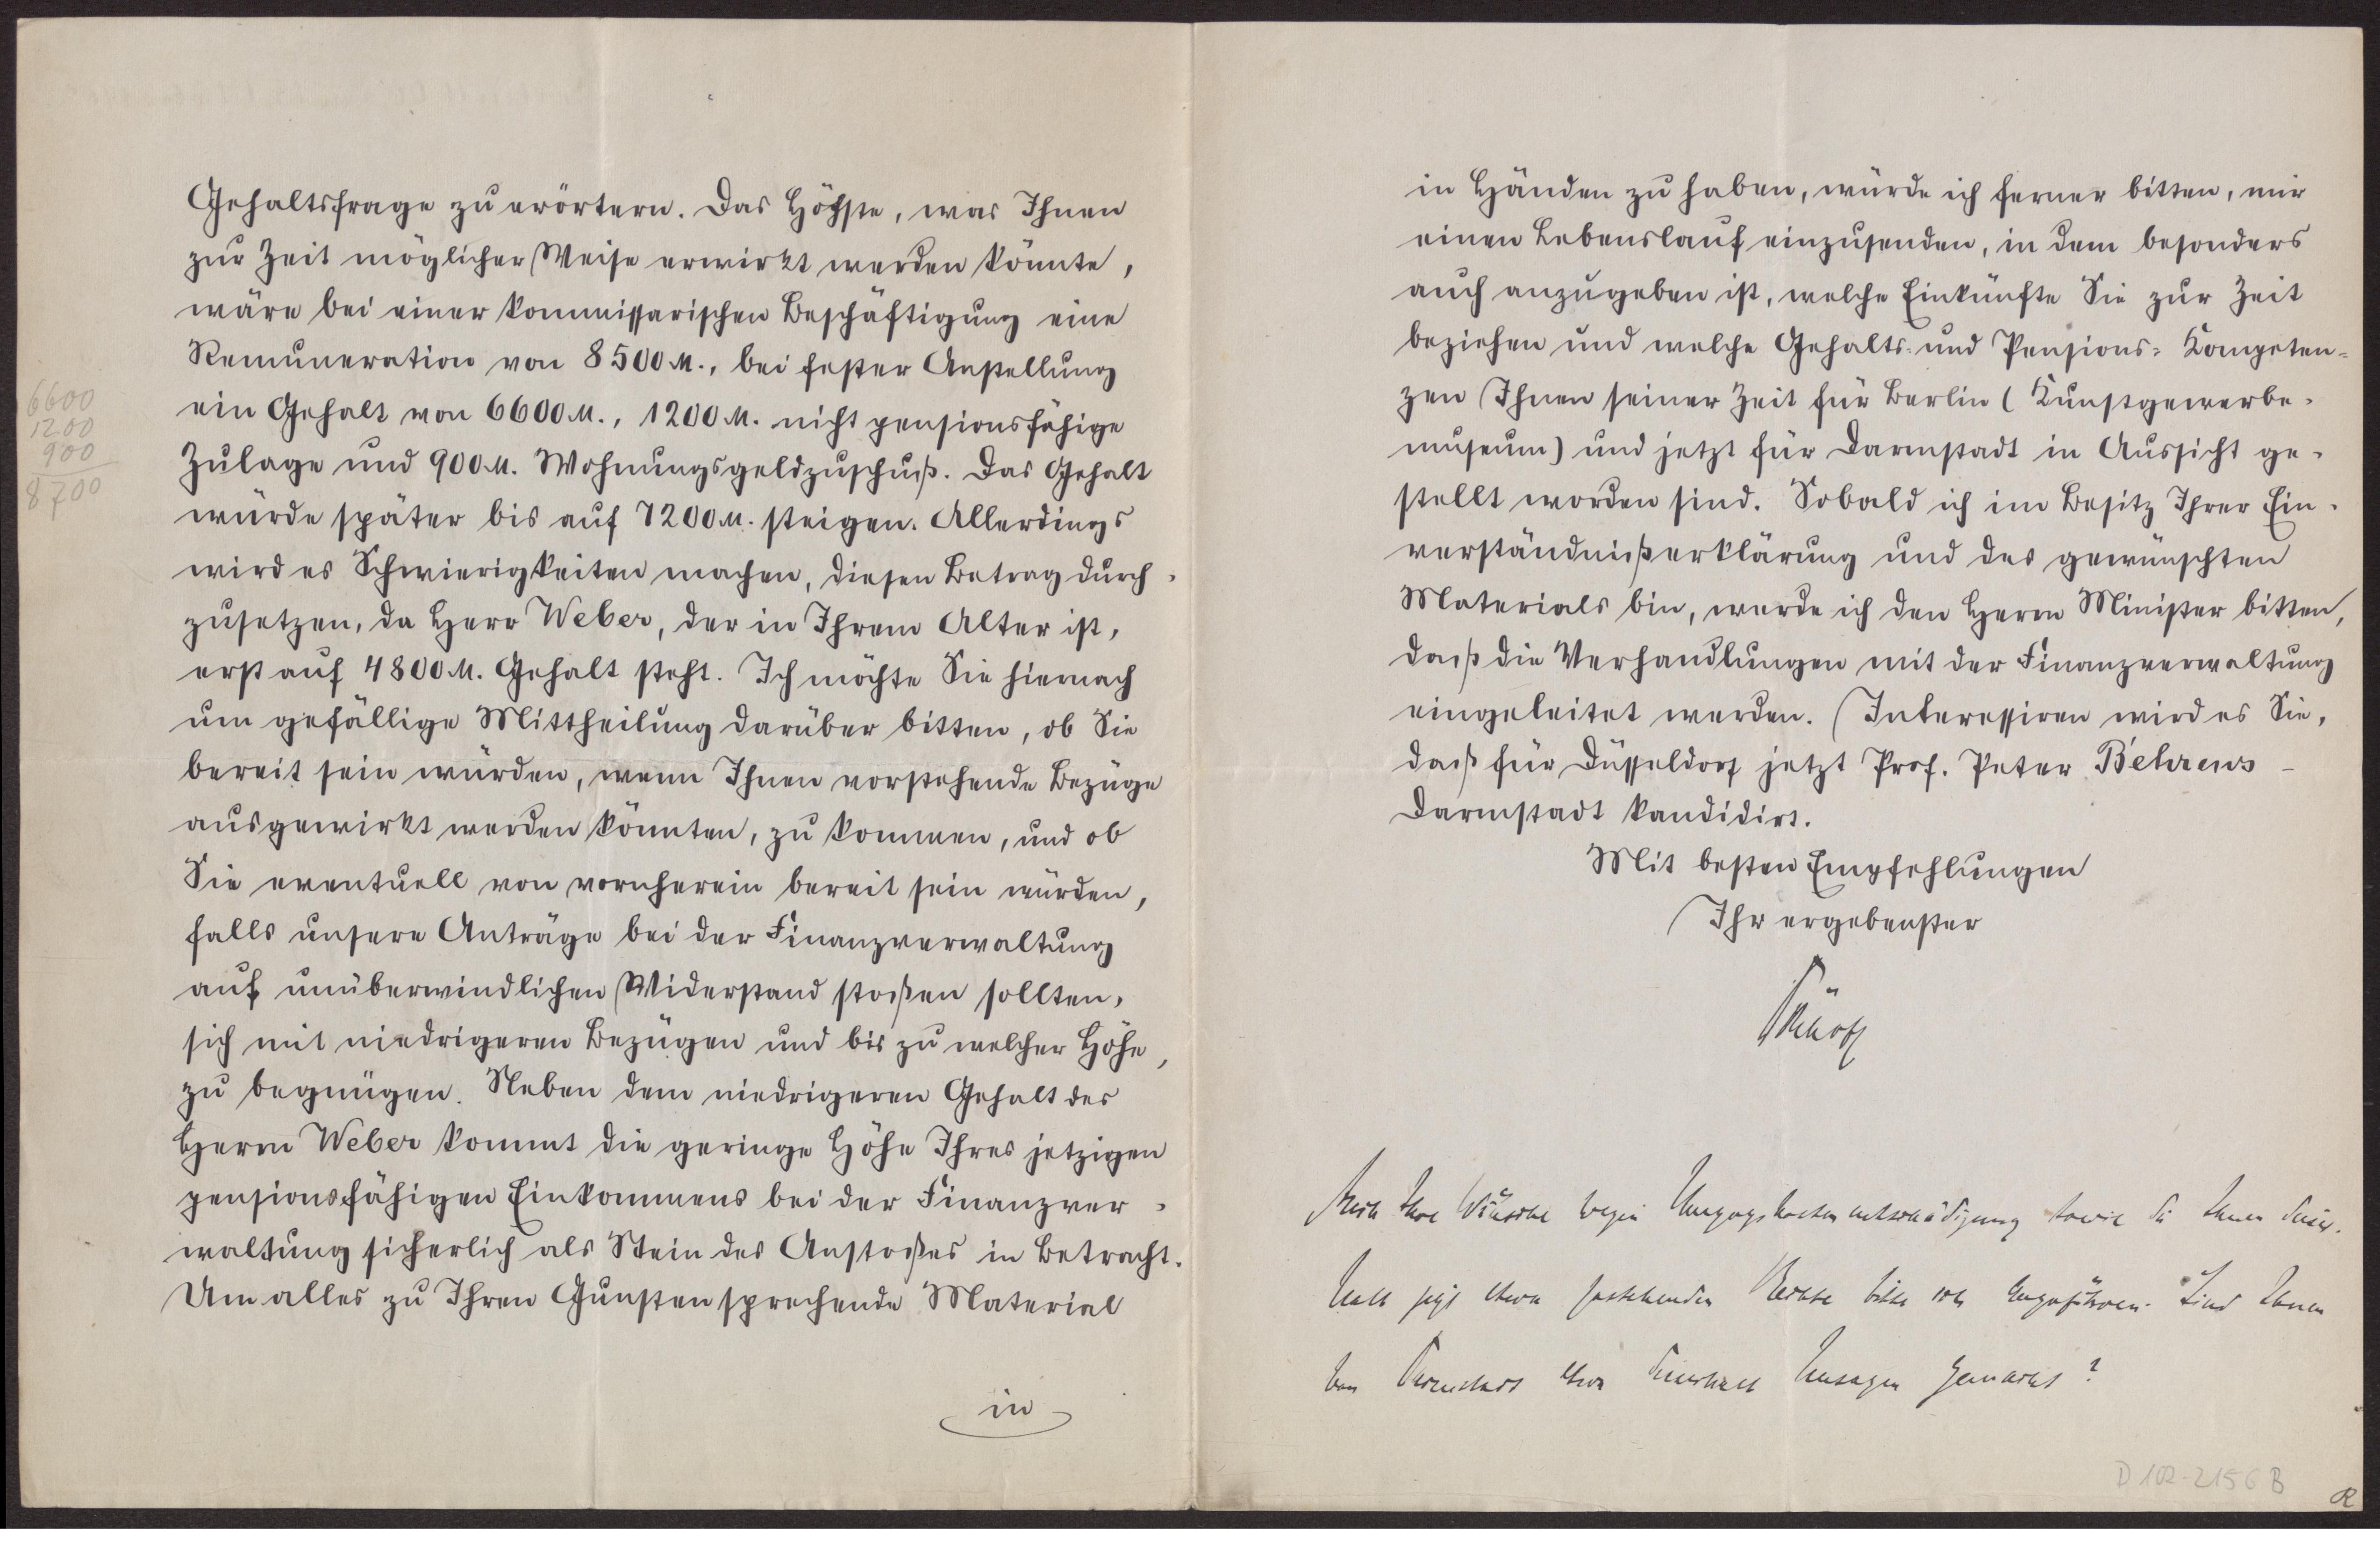 Gehaltsfrage zu erörtern. Das Höchste, was Ihnen
zur Zeit möglicher Weise erwirkt werden könnte,
wäre bei einer kommissarischen Beschäftigung eine
Remuneration von 8500 M., bei fester Anstellung
ein Gehalt von 6600 M., 1200 M. nicht pensionsfähige
Zulage und 900 M. Wohnungsgeldzuschuß. Das Gehalt
würde später bis auf 7200 M. steigen. Allerdings
wird es Schwierigkeiten machen, diesen Betrag durch-
zusetzen, da Herr Weber, der in Ihrem Alter ist,
erst auf 4800 M. Gehalt steht. Ich möchte Sie hiernach
um gefällige Mittheilung darüber bitten, ob Sie
bereit sein würden, wenn Ihnen vorstehende Bezüge
ausgewirkt werden könnten, zu kommen, und ob
Sie eventuell von vornherein bereit sein würden,
falls unsere Anträge bei der Finanzverwaltung
auf unüberwindlichen Widerstand stoßen sollten,
sich mit niedrigeren Bezügen und bis zu welcher Höhe,
zu begnügen. Neben dem niedrigeren Gehalt des
Herrn Weber kommt die geringe Höhe Ihres jetzigen
pensionsfähigen Einkommens bei der Finanzver-
waltung sicherlich als Stein des Anstoßes in Betracht.
Um alles zu Ihren Gunsten sprechende Material
in
6600
1200
900
8700
in Händen zu haben, würde ich ferner bitten, mir
einen Lebenslauf einzusenden, in dem besonders
auch anzugeben ist, welche Einkünfte Sie zur Zeit
beziehen und welche Gehalts- und Pensions-Kompeten-
zen Ihnen seiner Zeit für Berlin (Kunstgewerbe-
museum) und jetzt für Darmstadt in Aussicht ge-
stellt worden sind. Sobald ich im Besitz Ihrer Ein-
verständnißerklärung und des gewünschten
Materials bin, werde ich den Herrn Minister bitten,
daß die Verhandlungen mit der Finanzverwaltung
eingeleitet werden. Interessiren wird es Sie,
daß für Düsseldorf jetzt Prof. Peter Behrens-
Darmstadt kandidirt.
Mit besten Empfehlungen
Ihr ergebenster
Auch Ihre Wünsche wegen Umzugskostenentschädigung sowie die Ihnen
jetzt etwa zustehenden Rechte bitte ich anzuführen. Sind Ihnen
von Darmstadt etwa Zusagen gemacht?
D 102-2156 B
R